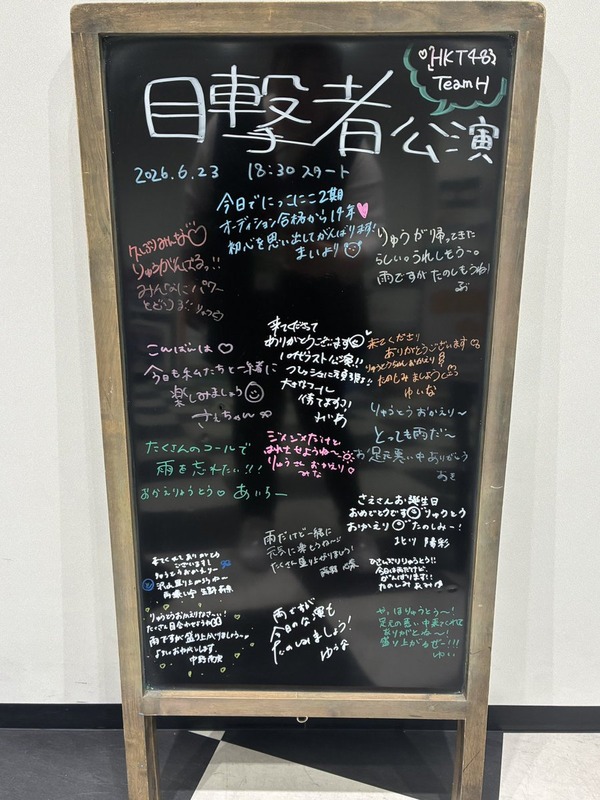 HKT48
Team H
目撃者公演
2026.6.23 18:30 スタート
今日でにっこにこ2期
オーディション合格から14年♥
初心を思い出してがんばり村!
まいより
久しぶりみんな♡
りゅうがんばるっ!!
みんなにパワー
とどけ
りゅうが帰ってきた
らしい。うれしもう〜。
雨ですが たのしもうね!
こんばんは♡
今日も私たちと一緒に
楽しみましょう
さえちゃん
来てくださって
ありがとうございます
10代ラスト公演!!
フレッシュに頑張る!!
大きなコール
待ってます♡!
みいあ
来てくださり
ありがとうございます
りゅうとうちゃんおかえり
たのしみましょう
ゆいな
りゅうとう おかえり〜
とっても雨だ〜
お足元悪い中ありがとう
あき
たくさんのコールで
雨を忘れたい!!!
おかえりゅうとう♡ あいろー
ジメジメだけど
はれさせようぜ〜
りゅうさん おかえり♡
みな
さえさんお誕生日
おめでとうです りゅうとう
おかえり たのしみ〜!
北川 陽彩
雨だけど一緒に
元気に楽しもうね〜
たくさん盛り上がりましょう!
来てくれてありがとう
ございます!
りゅうとうおかえり!
沢山盛り上がろうね〜
生野 莉奈
ひさしぶりりゅうとう!!
今日は雨だけど、
がんばります!!
たのしみ
りゅうとうおかえりなさ〜い!
たくさん目合わせようね
雨ですが盛り上がりましょう〜
よろしくおねがいします。
雨ですが
今日の公演も
たのしみましょう!
ゆうな
やっほりゅうとう〜!
足元の悪い中来てくれて
ありがとね〜!
盛り上がるぜー!!!
ゆい